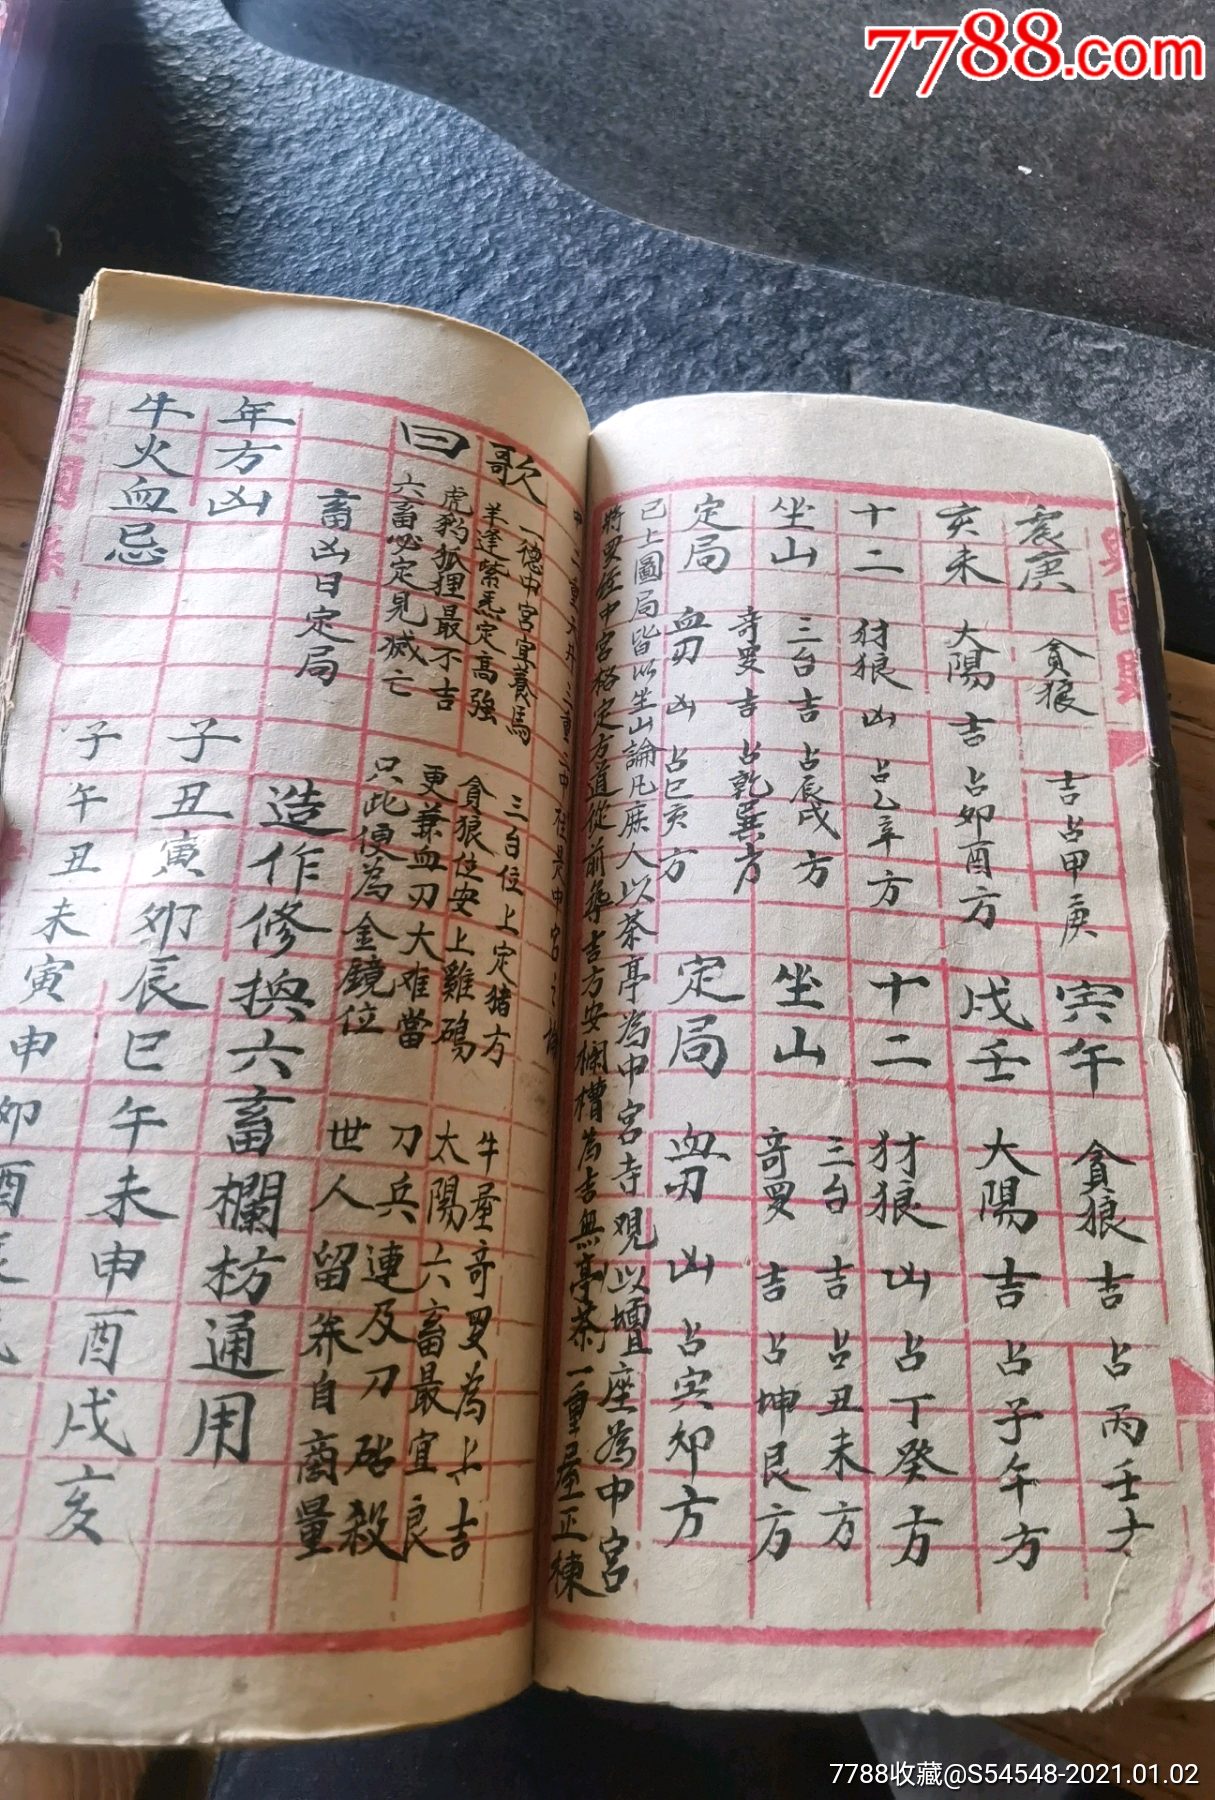 7788.com
興國縣
震庚 貪狼 吉 占甲庚 寅午 貪狼 吉 占丙壬
亥未 太陽 吉 占卯酉方 戌壬 太陽 吉 占子午方
十二 豺狼 凶 占乙辛方 十二 豺狼 凶 占丁癸方
坐山 三台 吉 占辰戌方 坐山 三台 吉 占丑未方
奇羅 吉 占乾巽方 奇羅 吉 占坤艮方
定局 血刃 凶 占巳亥方 定局 血刃 凶 占寅卯方
已上圖局皆以坐山論凡庶人以茶亭為中宮寺觀以壇座為中宮
將羅經中宮格定方道從前 吉方安欄槽為吉無亭茶一重屋正棟
歌曰
一德中宮宜養馬 三台位上定猪方 牛屋奇羅為上吉
羊逢紫炁定高強 貪狼位安上雞鵝 太陽六畜最宜良
虎豹狐狸最不吉 更兼血刃大难當 刀兵連及刀砧殺
六畜必定見滅亡 只此便為金鏡位 世人留筞自商量
畜凶日定局 造作修換六畜欄枋通用
年方凶 子丑寅卯辰巳午未申酉戌亥
牛火血忌 子午丑未寅申卯酉
7788收藏@S54548-2021.01.02